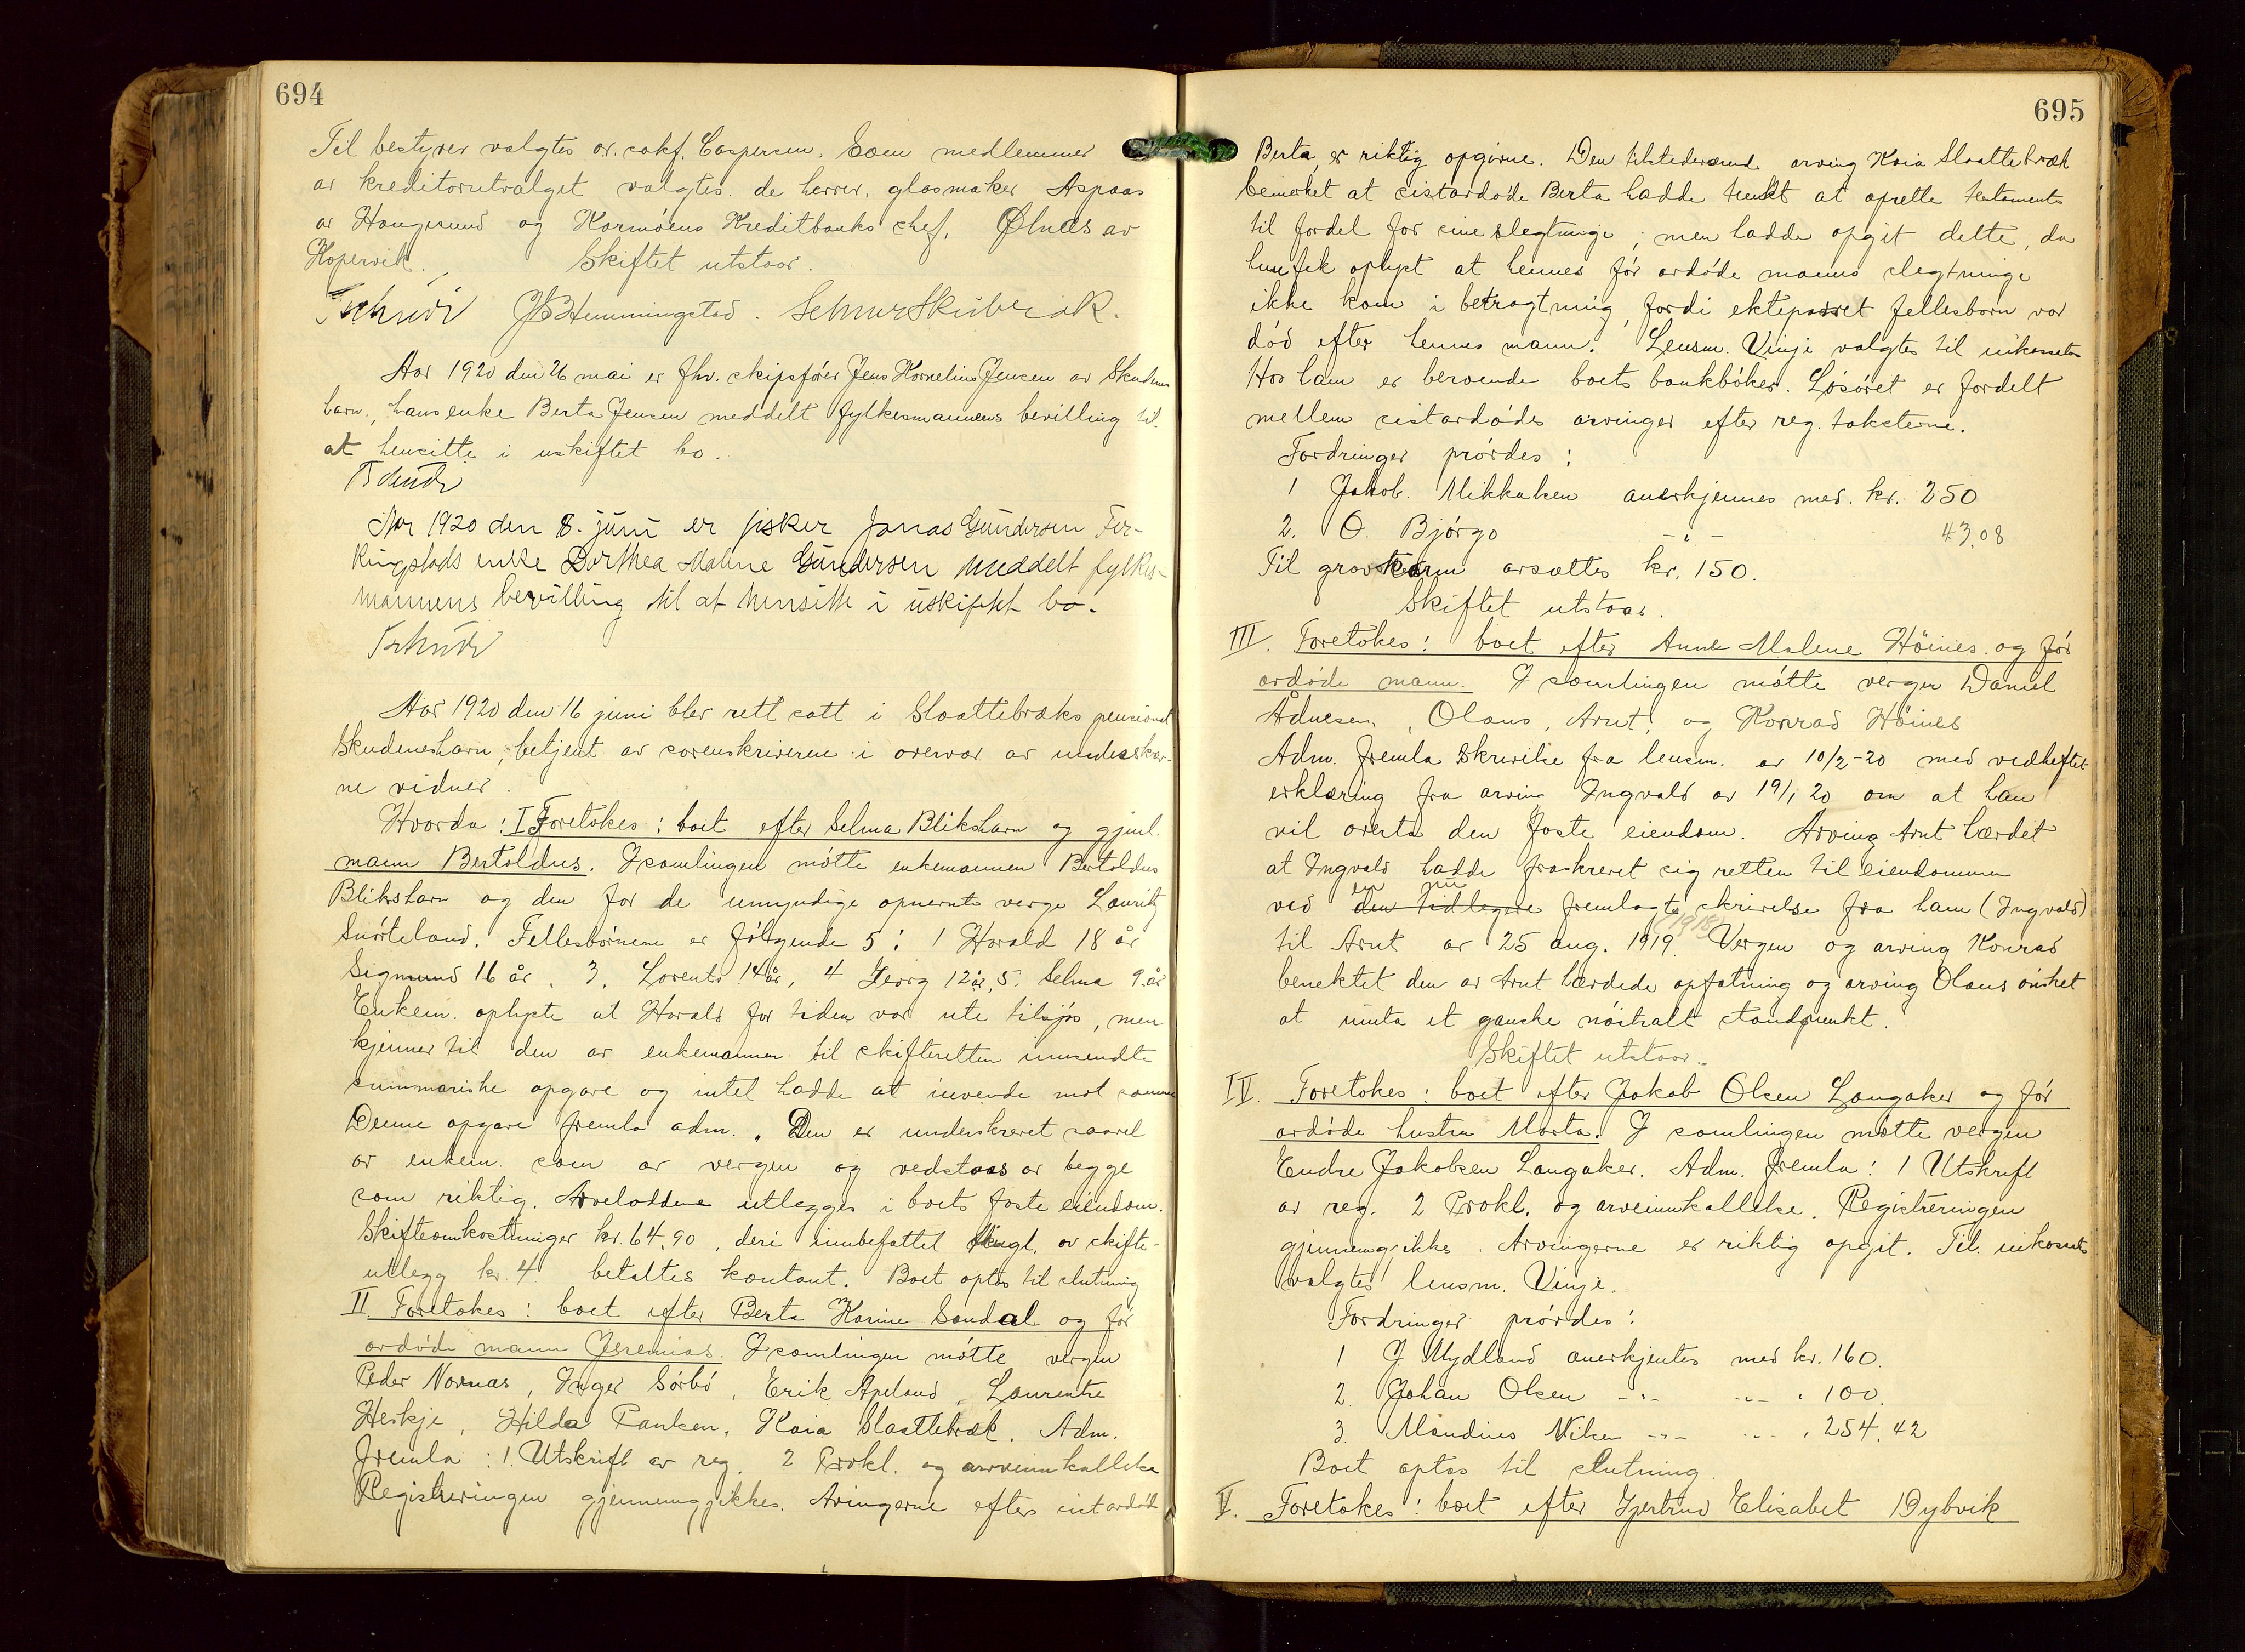 694
Til bestyrer valgtes ov. sakf. Caspersen. Som medlemmer
av kreditorutvalget valgtes de herrer glasmaker Aspaas
av Haugesund og Karmöens Kreditbanks chef. Ölnes av
Kopervik. Skiftet utstaar.
Tschudi JB Hemmingstad. Selmer Skibenæk.
Aar 1920 den 26 mai er fhv. skipsförer Jens Kornelius Jensen av Skudenes
havn, hans enke Berta Jensen meddelt fylkesmannens bevilling til
at hensitte i uskiftet bo.
Tschudi
Aar 1920 den 8. juni er fisker Jonas Gundersen Fer-
kingstads enke Dorthea Maline Gundersen meddelt fylkes-
mannens bevilling til at hensitte i uskiftet bo.
Tschudi
Aar 1920 den 16 juni blev rett satt i Slaattebræks pensionat
Skudeneshavn, betjent av sorenskriveren i overvær av underskrev-
ne vidner.
Hvorda: I Foretokes: boet efter Selma Blikshavn og gjenl.
mann Bertoldus. I samlingen mötte enkemannen Bertoldus
Blikshavn og den for de umyndige opnevnte verge Lauritz
Snörteland. Fellesbörnene er fölgende 5: 1 Harald 18 år
Sigmund 16 år, 3. Lorents 14 år, 4 Georg 12 år, 5. Selma 9 år
Enkem. oplyste at Harald for tiden var ute tilsjös, men
kjenner til den av enkemannen til skifteretten innsendte
summariske opgave og intet hadde at invende mot samme
Denne opgave fremla adm. Den er underskrevet saavel
av enkem. som av vergen og vedstaas av begge
som riktig. Arveloddene utlegges i boets faste eiendom.
Skifteomkostninger kr. 64,90, deri innbefattet tingl. av skifte-
utlegg kr. 4. betaltes kontant. Boet optas til slutning
II Foretokes: boet efter Berta Karine Sandal og för
avdöde mann Jeremias. I samlingen mötte vergen
Peder Nornas, Inger Sörbö, Erik Apeland, Laurentse
Heskje, Hilda Paulsen, Kaia Slaattebræk. Adm.
fremla: 1. Utskrift av reg. 2 Prokl. og arveinnkallelse
Registreringen gjennemgikkes. Arvingerne efter sistavdöde
695
Berta er riktig opgivne. Den tilstedeværend arving Kaia Slaattebræk
bemerket at sistavdöde Berta hadde tenkt at oprette testamente
til fordel for sine slegtninge; men hadde opgit dette, da
hun fik oplyst at hennes för avdöde manns slegtninge
ikke kom i betragtning, fordi ekteparret fellesbarn var
död efter hennes mann. Lensm. Vinje valgtes til inkassator
Hos ham er beroende boets bankböker. Lösöret er fordelt
mellem sistavdödes arvinger efter reg. taksterne.
Fordringer prövdes:
1 Jakob Mikkelsen anerkjennes med kr. 250
2. O. Björgo -"- 43,08
Til gravkarm avsættes kr. 150.
Skiftet utstaar.
III. Foretokes: boet efter Anne Malene Höines og för
avdöde mann. I samlingen mötte vergen Daniel
Ådnesen, Olaus, Arnt, og Konrad Höines
Adm. fremla Skrivelse fra lensm. av 10/2-20 med vedheftet
erklæring fra arving Ingvald av 19/1 20 om at han
vil overta den faste eiendom. Arving Arnt hævdet
at Ingvald hadde fraskrevet sig retten til eiendommen
en nu
ved den tidligere fremlagte skrivelse fra ham (Ingvald)
(1918)
til Arnt av 25 aug. 1919. Vergen og arving Konrad
benektet den av Arnt hævdede opfatning og arving Olaus önsket
at innta et ganske nöitralt standpunkt.
Skiftet utstaar.
IV. Foretokes: boet efter Jakob Olsen Langaker og för
avdöde hustru Marta. I samlingen mötte vergen
Endre Jakobsen Langaker. Adm. fremla: 1 Utskrift
av reg. 2 Prokl. og arveinnkallelse. Registreringen
gjennemgikkes. Arvingerne er riktig opgit. Til inkassator
valgtes lensm. Vinje.
Fordringer prövdes:
1 J Mydland anerkjentes med kr. 160.
2. Johan Olsen -"- -"- " 100.
3. Mandius Nilsen -"- -"- " 254,42
Boet optas til slutning.
V. Foretokes: boet efter Gjertrud Elisabet Dybvik